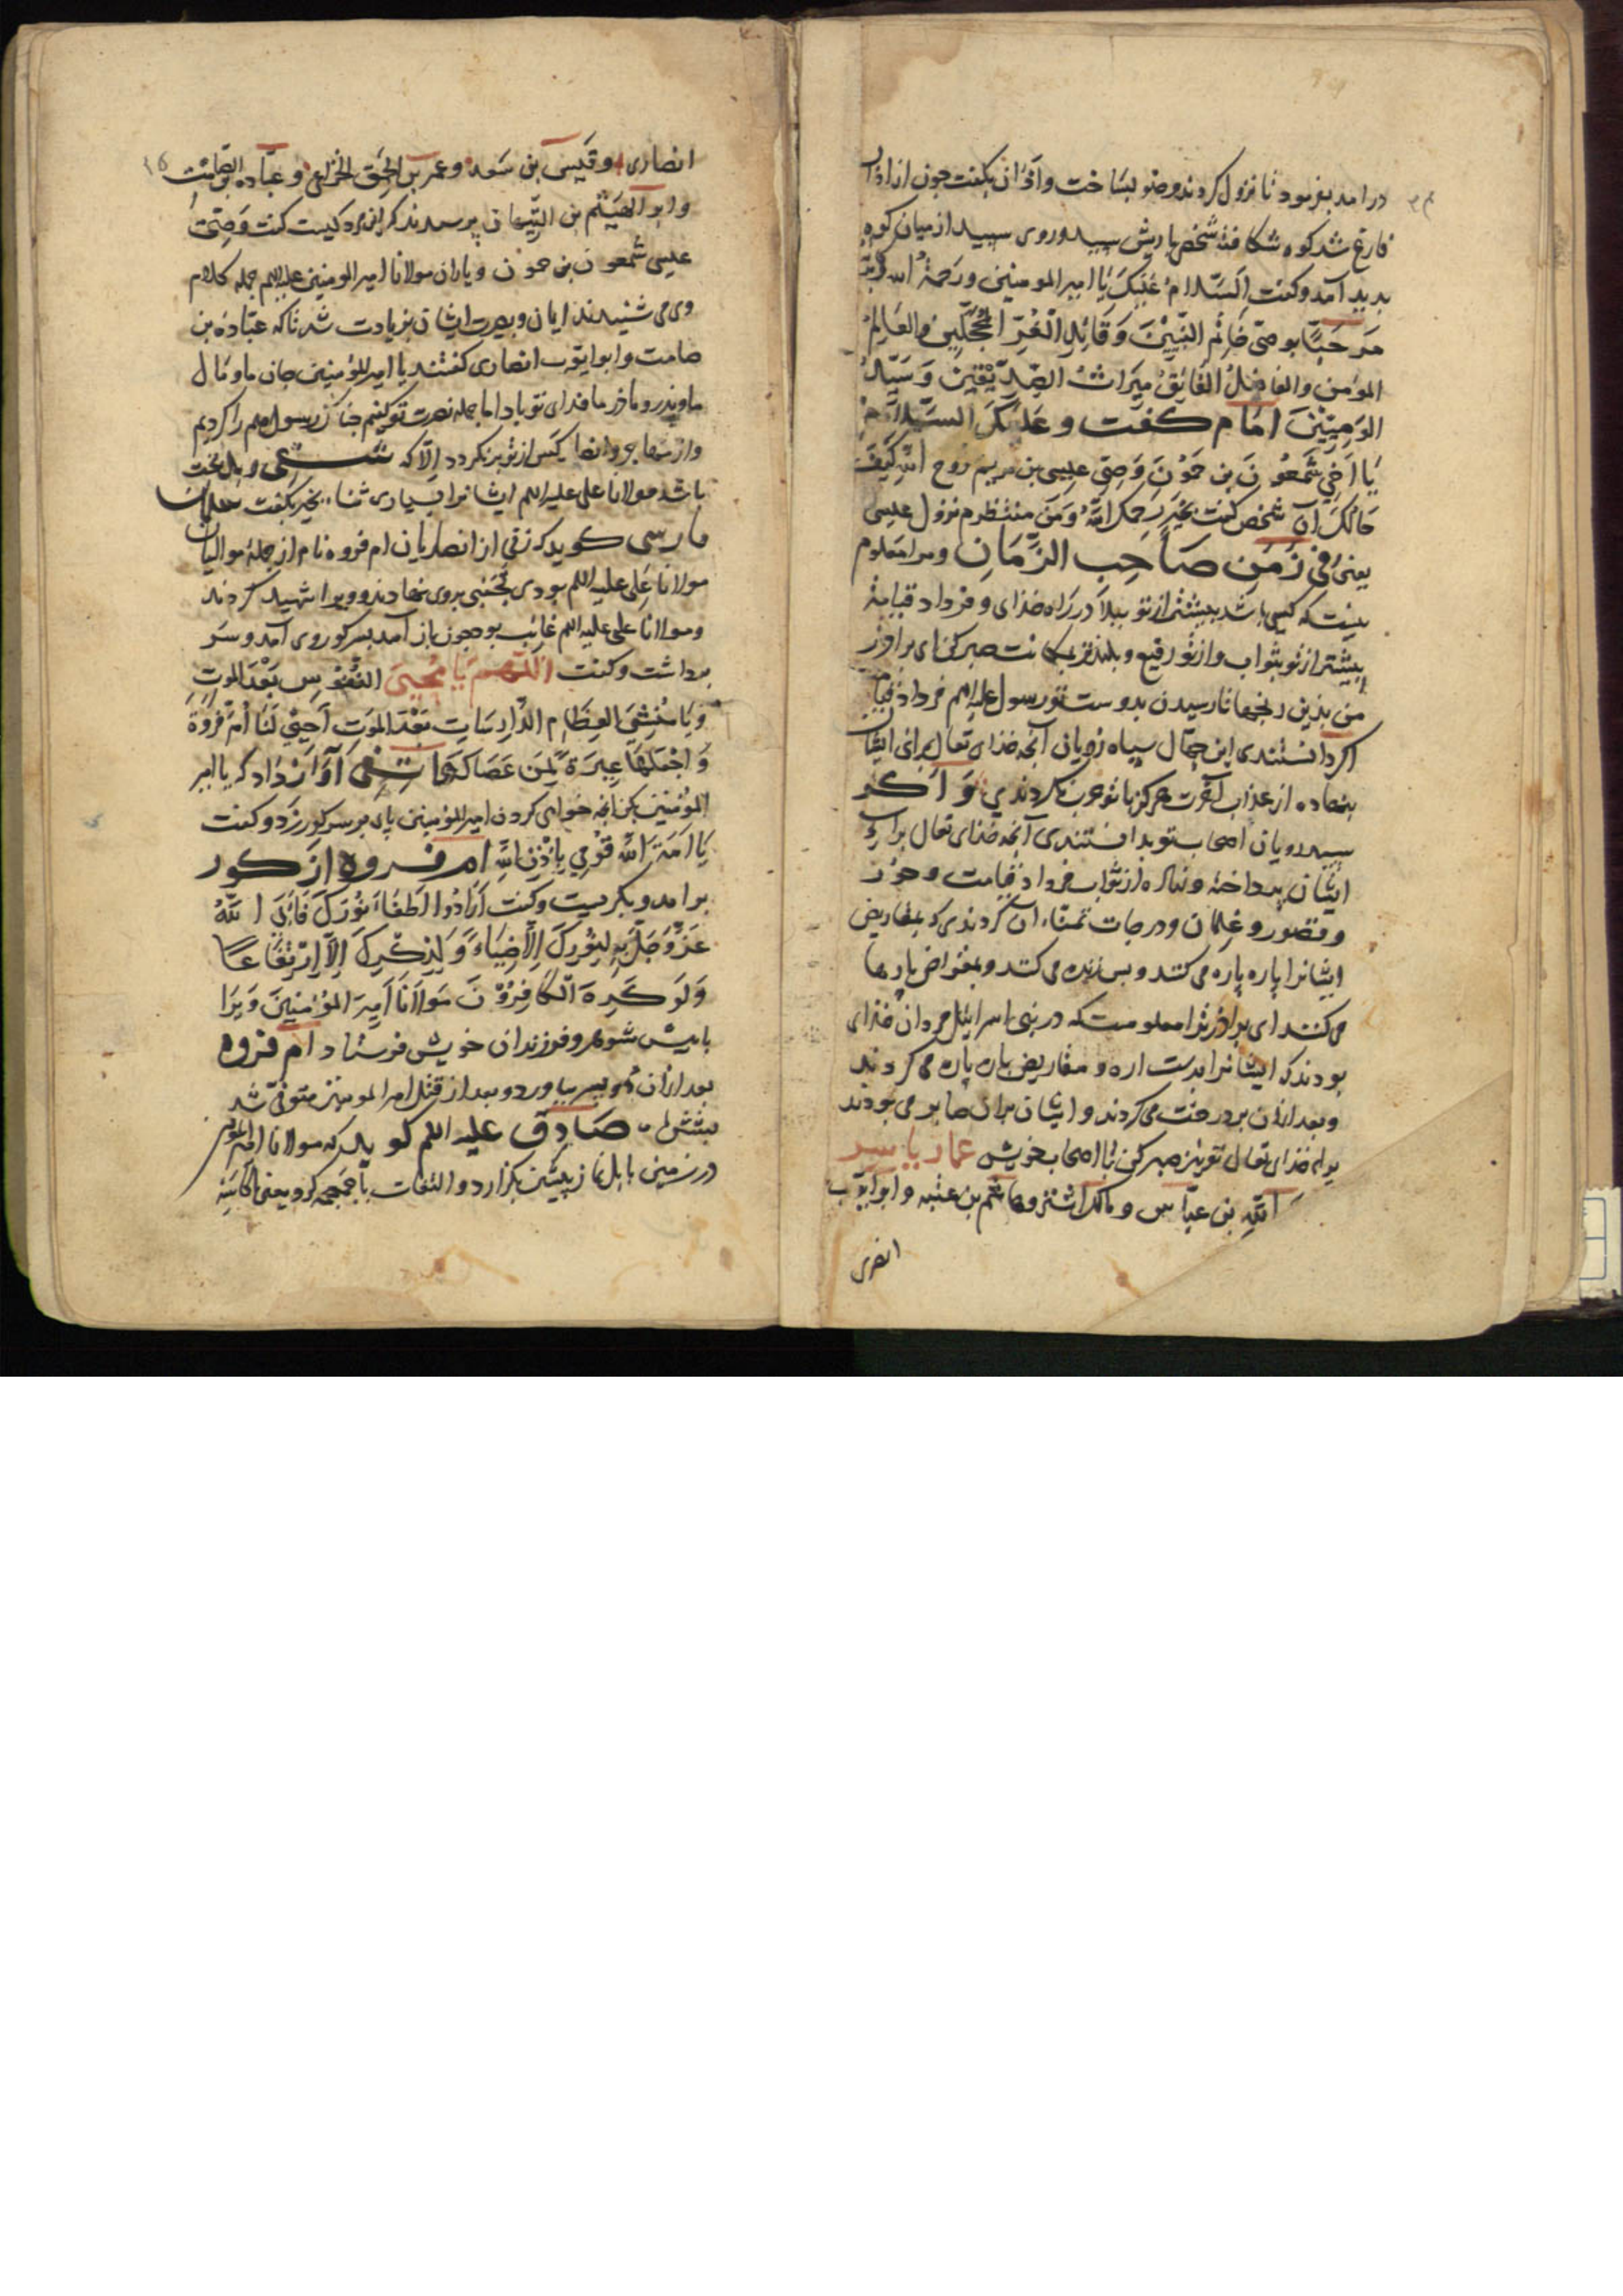 در امد بفرمود تا نزول کردند و وضو بساخت و اذان بکفت جون از اذان
فارغ شد کوه شکافته شخصی با ریش سپید و روی سپید از میان کوه
بدید آمد و کفت اَلسَّلامُ عَلَیْکَ یَا امیر المومنین ورَحمَةُ الله
مَرحَبًا بوصیّ خَاتَم النَّبیّینَ وَقَائِدِ الْغُرِّ المُحَجَّلِینَ والعَالِمُ
المؤمن والفَاضلُ الفَائِقُ مِیرَاثُ الصِّدِّیْقِینَ وَسَیِّدُ
الوَصِیّیْنَ امَام کفت و عَلَیْکَ السَّلامُ
یَا اَخِی شَمعُونَ بن حَمُّوْنَ وَصِیّ عِیسی بن مریم روح اللهِ کَیْفَ
حَالُکَ ان شخص کفت بخَیر یَرحمک اللهُ وَمَن منتظرم نزول عیسی
یعنی فی زَمَنِ صَاحِبِ الزَّمَانِ ومرا معلوم
نیست که کسی باشد بیشتر از تو ببلا در راه خدای و فردا د قیامة
بیشتر از تو بثواب و از تو رفیع و بلندتر بمکانت صبر کن ای برادر
من بذین رنجها تا رسیدن بدوست تو رسول علیه السلم فرداد قیامت
اکر دانستندی این جهّال سیاه رویان آنجه خذای تعالی برای ایشان
بنهاده از عذاب آخرت هرکز با تو حرب نکردندی وَ اکر
سپید رویان اصحابتو بدانستندی آنجه خذای تعالی برای
ایشان بساخته و نهاده از ثواب فردا د قیامت و حور
و قصور و غلمان و درجات تمنّاء ان کردندی که بمقاریض
ایشانرا پاره پاره می کنند و بس زنده می کنند و بمقراض پارها
می کنند ای براذر ترا معلومست که در بنی اسرائیل مردان خذای
بودند که ایشانرا بدست اره و مقاریض پاره پاره می کردند
و بعد از ان بر درخت می کردند و ایشان بران صابر می بودند
برای خذای تعالی تو نیز صبر کن با اصحاب خویش عمار یاسر
اللهِ بن عبّاس و مالک اشتر و هاشم بن عتبه و ابو ایّوب
انصاری
انصاری و قَیس بن سَعد و عمر بن الحَمِق الخزاعی و عبّاده بن الصّامت
و ابو الهَیثم بن التّیهان پرسیدند که این مرد کیست کفت وَصِیّ
عیسی شَمعون بن حمون و یاران مولانا امیر المومنین علیه السلم جمله کلام
وی می شنیدند ایمان و بصیرت ایشان بزیادت شد تا که عبّادة بن
صامت و ابو ایّوب انصاری کفتند یا امیر المؤمنین جان ما و مال
ما و پدر و ماذر ما فدای تو باد اما جمله نصرت تو کنیم جنانک رسول صلعم را کردیم
و از مهاجر و انصار کس از تو برنکردد اِلّا که شقی و بد بخت
باشد مولانا علی علیه السلم ایشانرا بسیاری ثنا بخیر بکفت سلمان
فارسی کوید که زنی از انصاریان ام فروه نام از جمله موالیان
مولانا علی علیه السلم بودی تجنّبی بروی نهادند و ویرا شهید کردند
و مولانا علی علیه السلم غایب بود جون باز آمد بسر کور وی آمد و سَر
برداشت و کفت اَللّهُمَّ یَا مُحْیِیَ النُّفُوسِ بَعْدَ المَوتِ
وَیَا مُنْشِیَ العِظَامِ الدَّارِسَاتِ بَعْدَ المَوتِ اَحْیِ لَنَا اُمّ فَرْوَةَ
وَاجْعَلْهَا عِبْرَةً لِمَن عَصَاکَ هاتفی آوَازْ دَاد که یا امیر
المؤمنین بکن انجه خواهی کردن امیر المؤمنین پای بر سر کور زَد و کفت
یَا اَمَةَ اللهِ قُوْمِی بِاِذْنِ اللهِ ام فروه از کور
برامد و بکریست و کفت اَرَادُوا اِطفَاءَ نُوْرِکَ فَاَبَی اللهُ
عَزَّوَجَلَّ لِنُوْرِکَ اِلَّا ضِیَاءً وَلِذِکْرِکَ اِلَّا اِرْتِفَاعًا
وَلَو کَرِهَ الْکَافِرُوْنَ مَولَانَا اَمِیرَ المُؤْمِنِینَ وَیرَا
با پیش شوهر و فرزندان خویش فرستاد ام فروه
بعد از ان دو پسر بیاورد و بعد از قتل امیر المومنین متوفّی شد
صَادِق علیه السلم کوید که مولانا امیر المؤمنین
در زمین بابل نماز پیشین بکزارد و التفات با جمجمه کرد یعنی کاسَهٔ